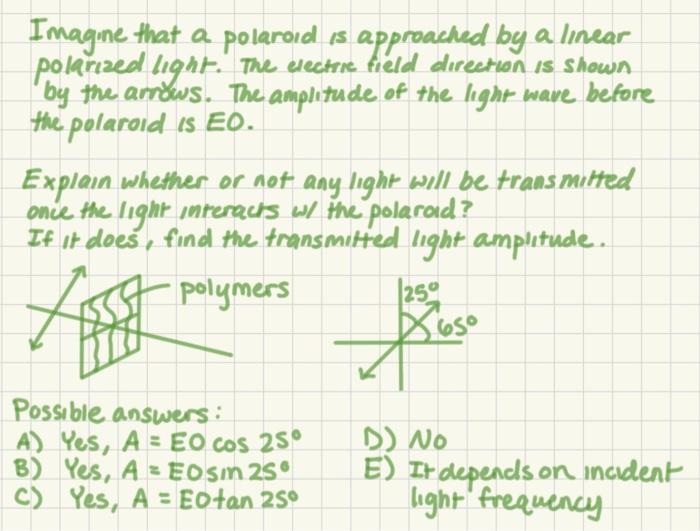 Imagine that a polaroid is approached by a linear
polarized light. The electric field direction is shown
by the arrows. The amplitude of the light wave before
the polaroid is EO.
Explain whether or not any light will be transmitted
once the light interacts w/ the polaroid?
If it does, find the transmitted light amplitude.
polymers
25°
65°
Possible answers:
A) Yes, A = EO cos 25°
B) Yes, A = EO sin 25°
C) Yes, A = EO tan 25°
D) No
E) It depends on incident
light frequency